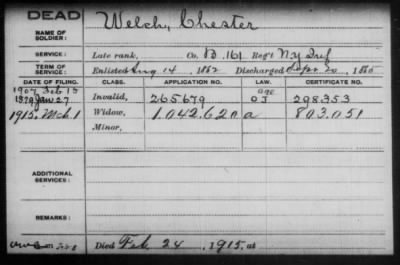 DEAD
NAME OF SOLDIER: Welch, Chester
SERVICE: Late rank, Co. B. 161 Reg't N.Y. Inf
TERM OF SERVICE: Enlisted Aug 14, 1862 Discharged 1865
DATE OF FILING. CLASS. APPLICATION NO. CERTIFICATE NO.
1907 Feb 15 age
1879 Jan 27 Invalid, 265679 298353
1915. Mch. 1 Widow, 1.042.620 a 803.051
Minor,
ADDITIONAL SERVICES:
REMARKS:
Died Feb. 24, 1915, at